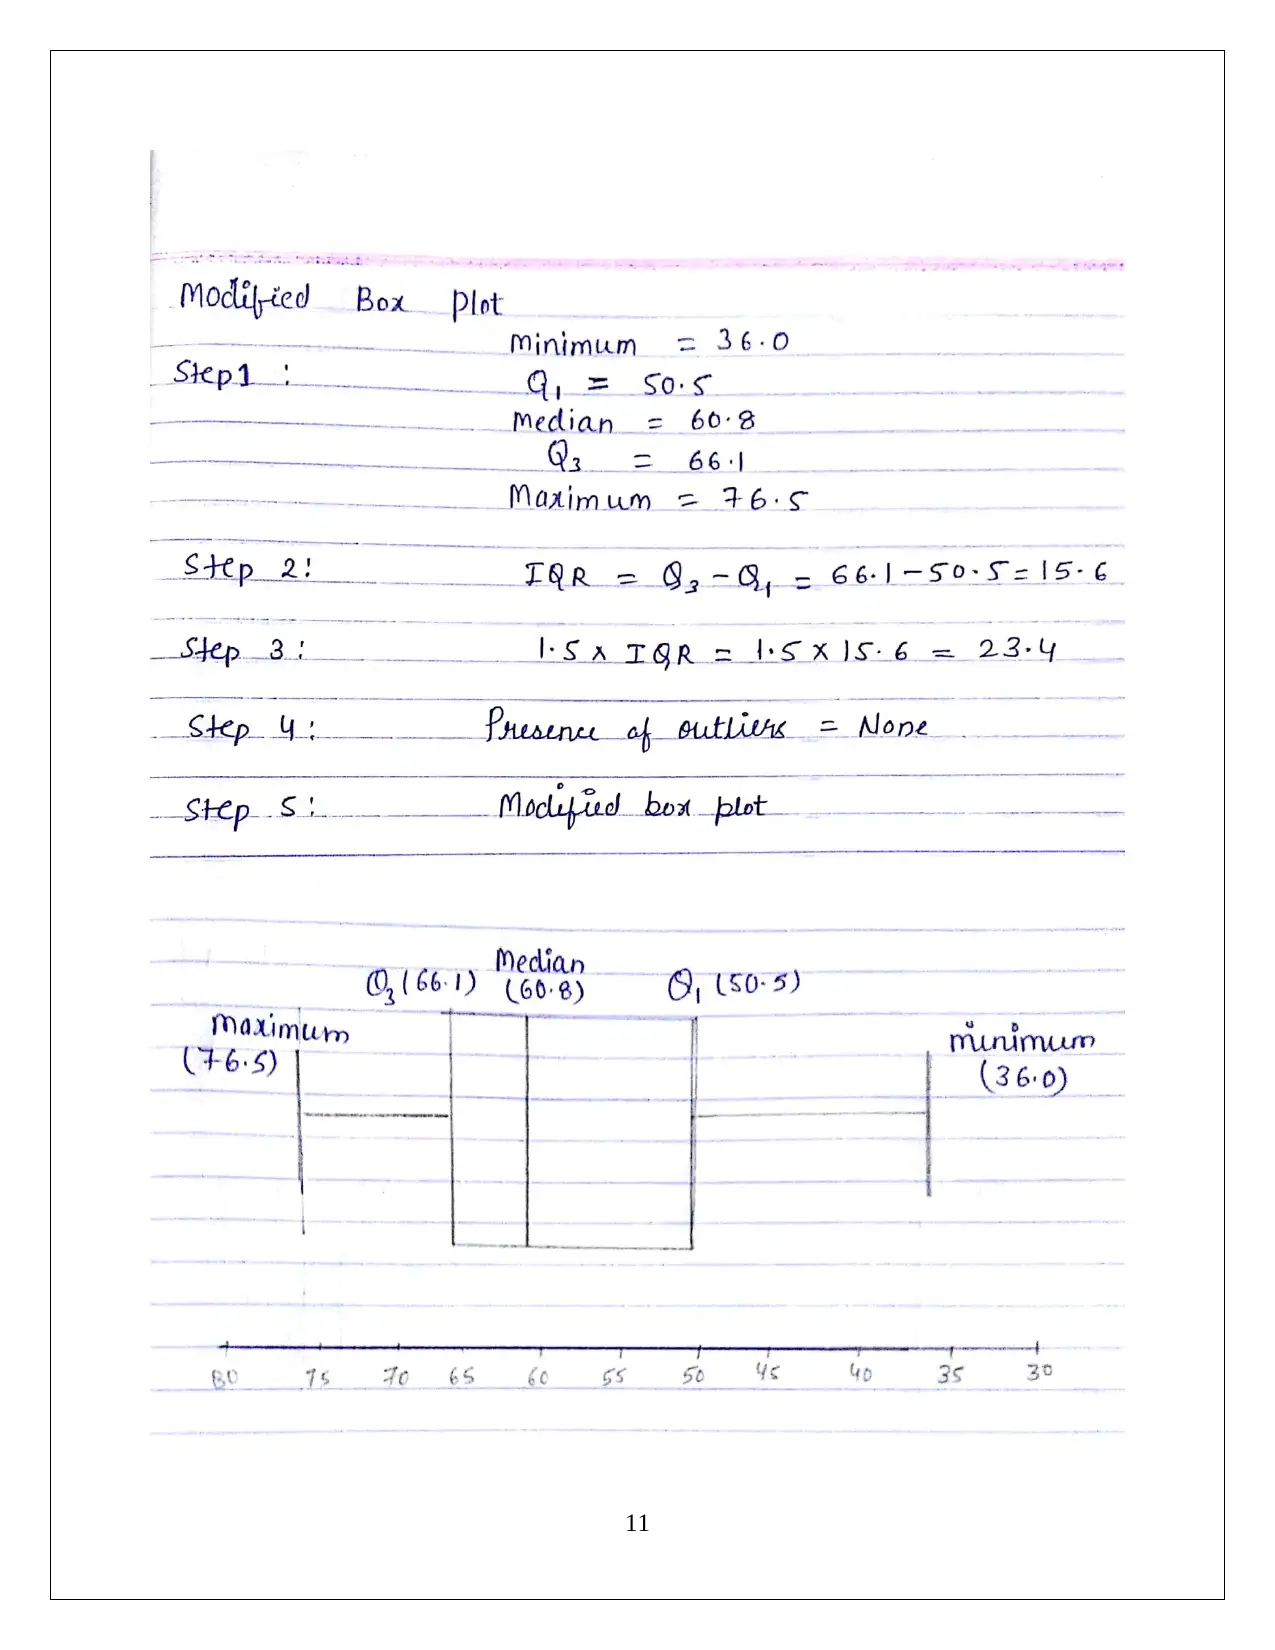 Modified Box Plot
minimum = 36.0
Step1 :
Q1 = 50.5
Median = 60.8
Q3 = 66.1
Maximum = 76.5
Step 2: IQR = Q3 - Q1 = 66.1 - 50.5 = 15.6
Step 3: 1.5 x IQR = 1.5 x 15.6 = 23.4
Step 4: Presence of outliers = None
Step 5: Modified box plot
Q3 (66.1) Median (60.8) Q1 (50.5)
Maximum (76.5)
minimum (36.0)
80 75 70 65 60 55 50 45 40 35 30
11